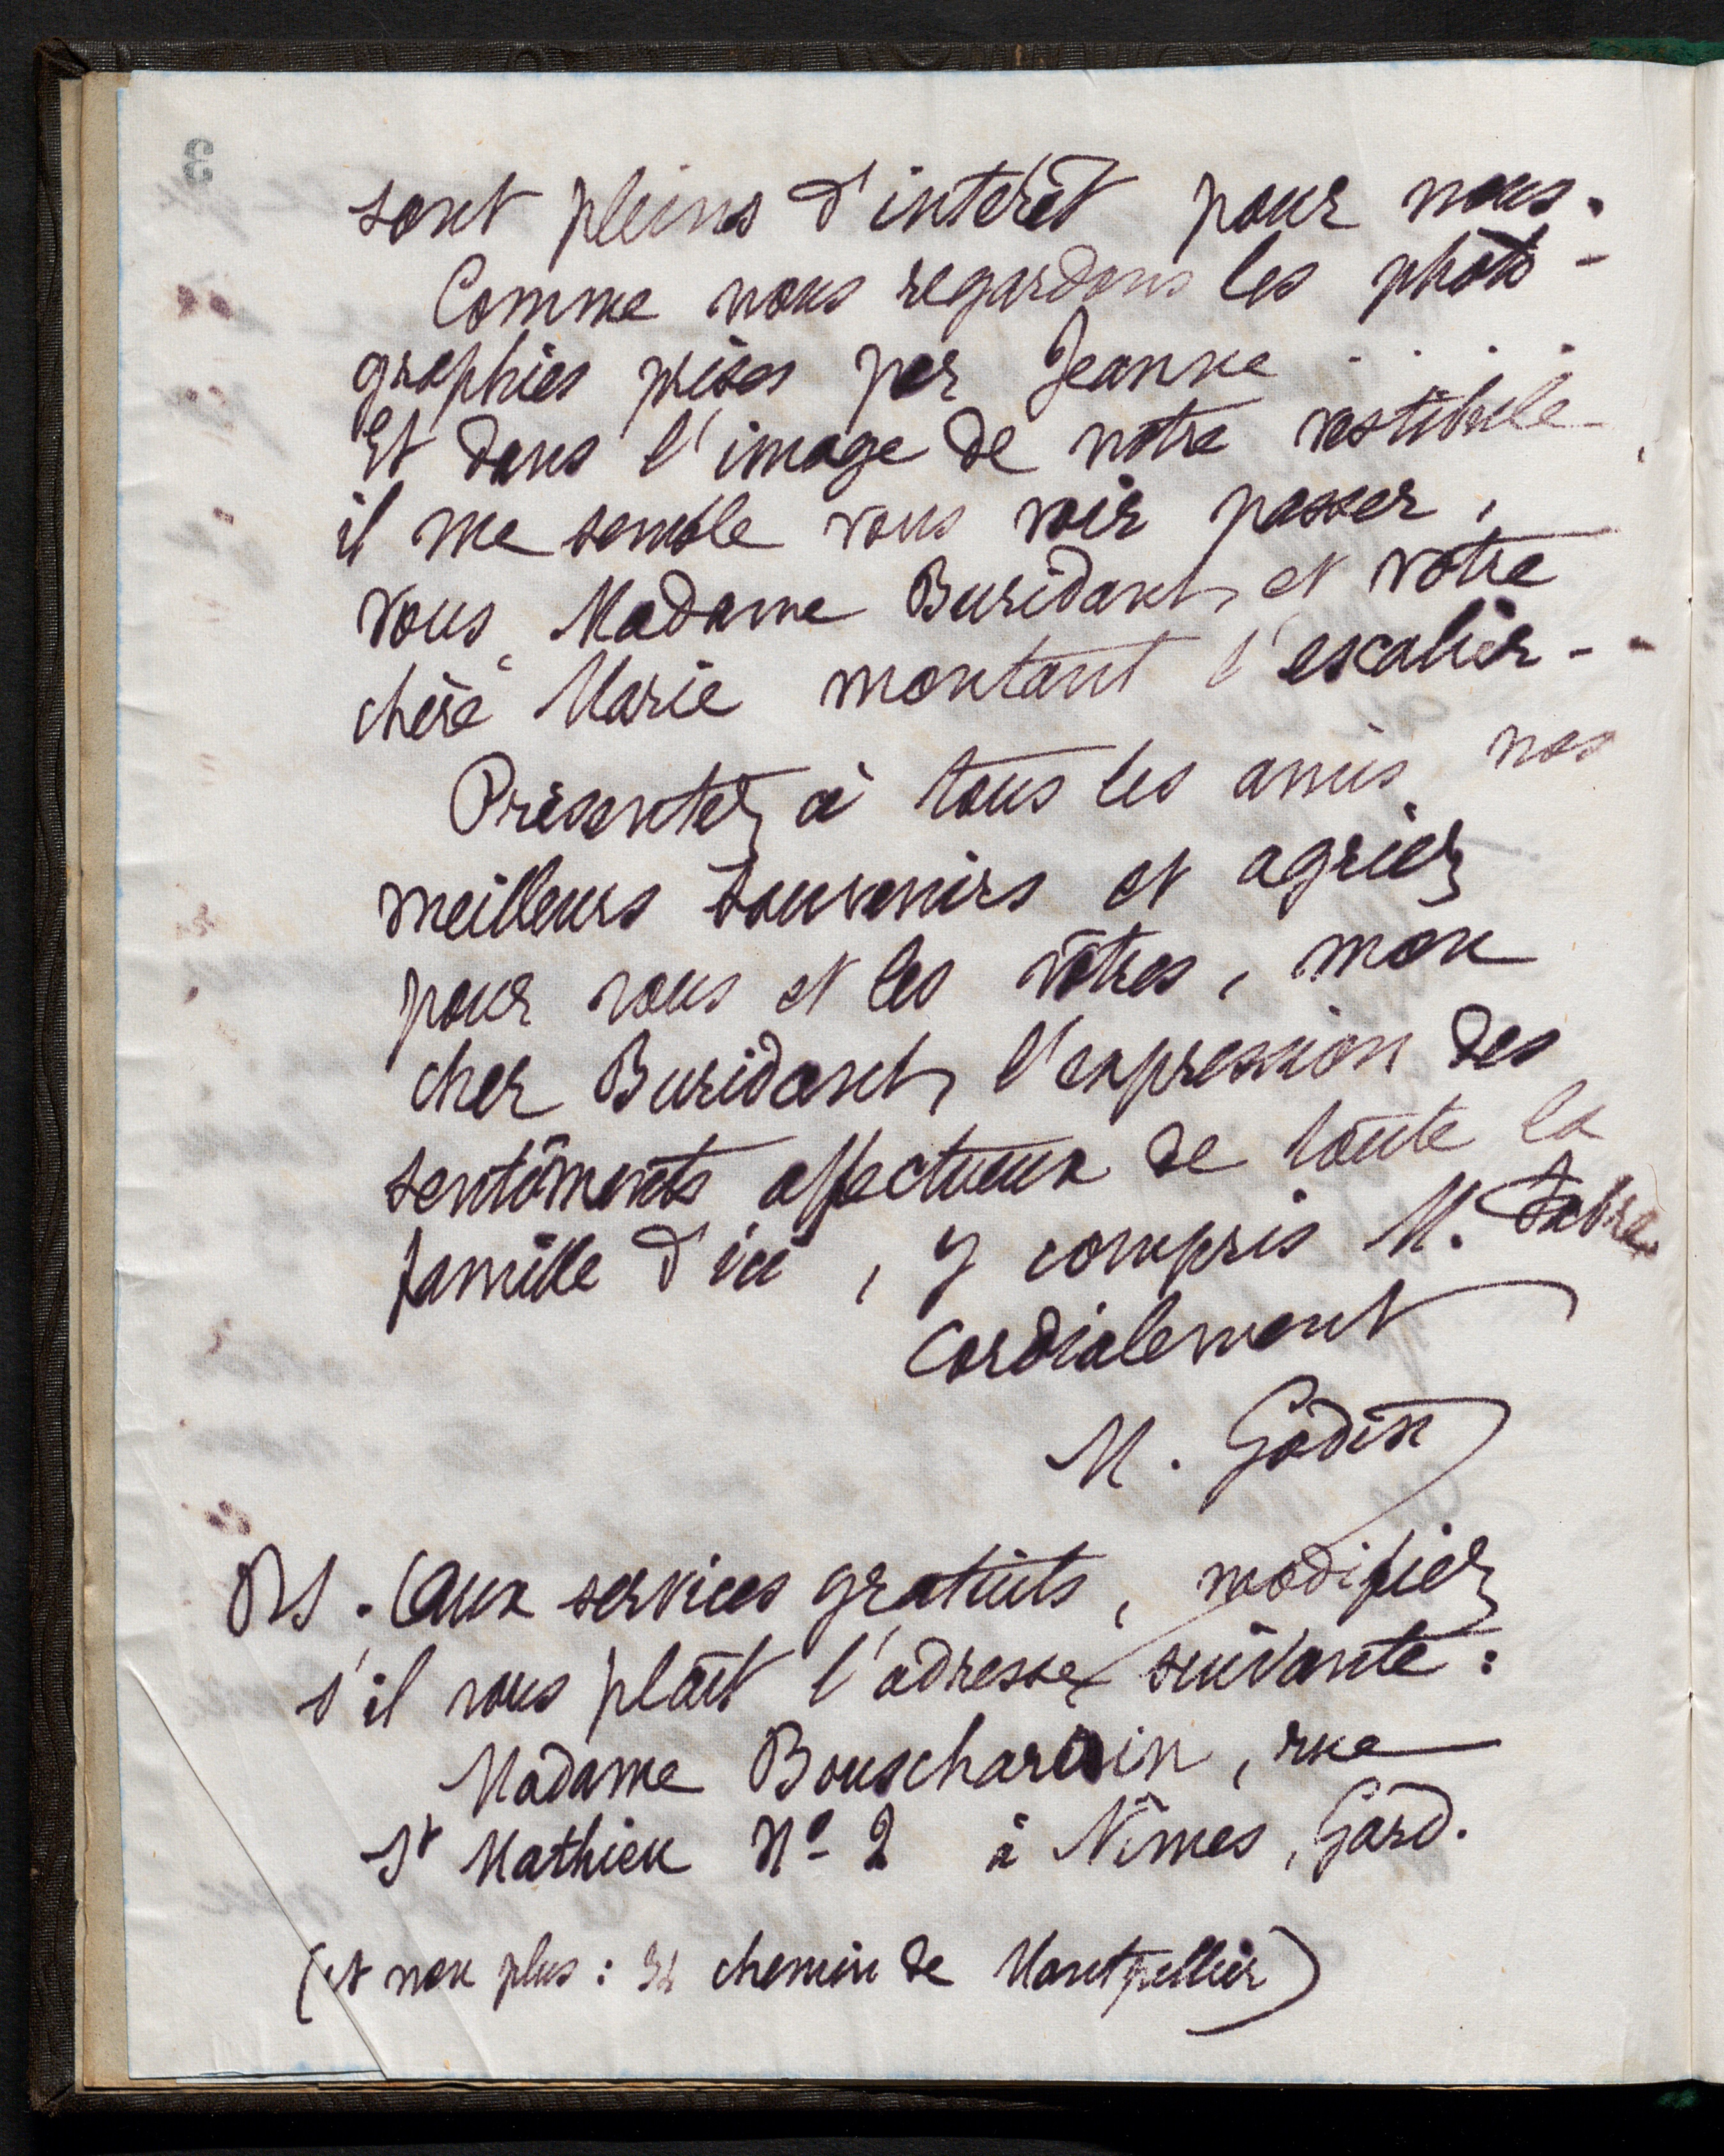 sont pleins d'intérêt pour nous.
Comme nous regardons les photo-
graphies prises par Jeanne . . . .
Et dans l'image de notre vestibule
il me semble vous voir passer,
vous, Madame Buridant, et votre
chère Marie montant l'escalier -
Présentez à tous les amis nos
meilleurs souvenirs et agréez
pour vous et les vôtres, mon
cher Buridant, l'expression des
sentiments affectueux de toute la
famille d'ici, y compris M. Fabre
Cordialement
M. Godin
PS. (Aux services gratuits, modifiez
s'il vous plaît l'adresse suivante :
Madame Bouschardin, rue
St Mathieu No 2 à Nîmes, Gard.
(et non plus : chemin de Montpellier)